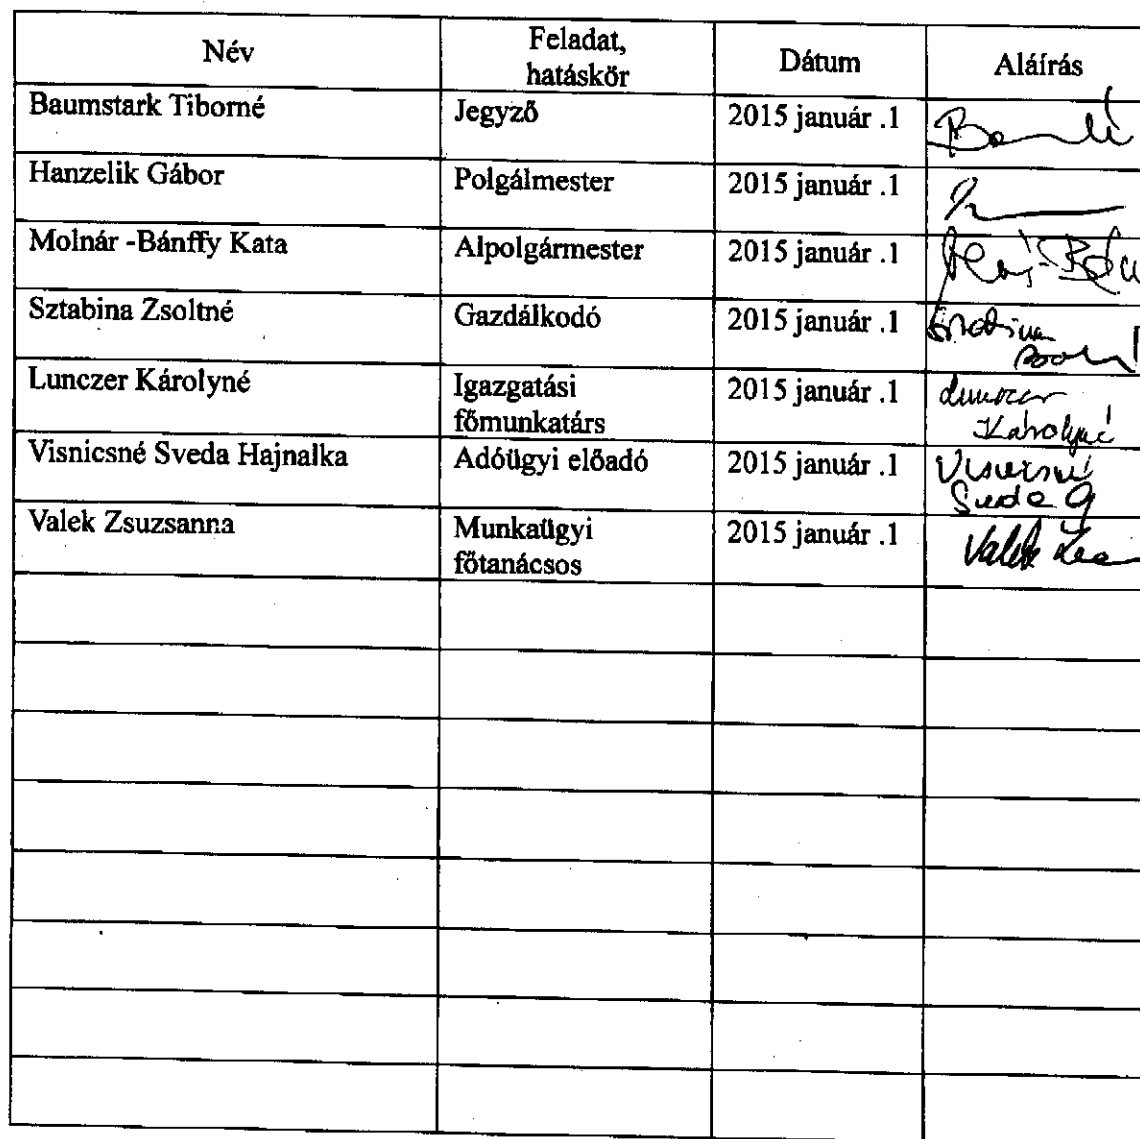 Név Feladat, hatáskör Dátum Aláírás
Baumstark Tiborné Jegyző 2015 január .1
Hanzelik Gábor Polgálmester 2015 január .1
Molnár -Bánffy Kata Alpolgármester 2015 január .1
Sztabina Zsoltné Gazdálkodó 2015 január .1
Lunczer Károlyné Igazgatási főmunkatárs 2015 január .1 Lunczer Károlyné
Visnicsné Sveda Hajnalka Adóügyi előadó 2015 január .1 Visnicsné
Valek Zsuzsanna Munkaügyi főtanácsos 2015 január .1 Valek